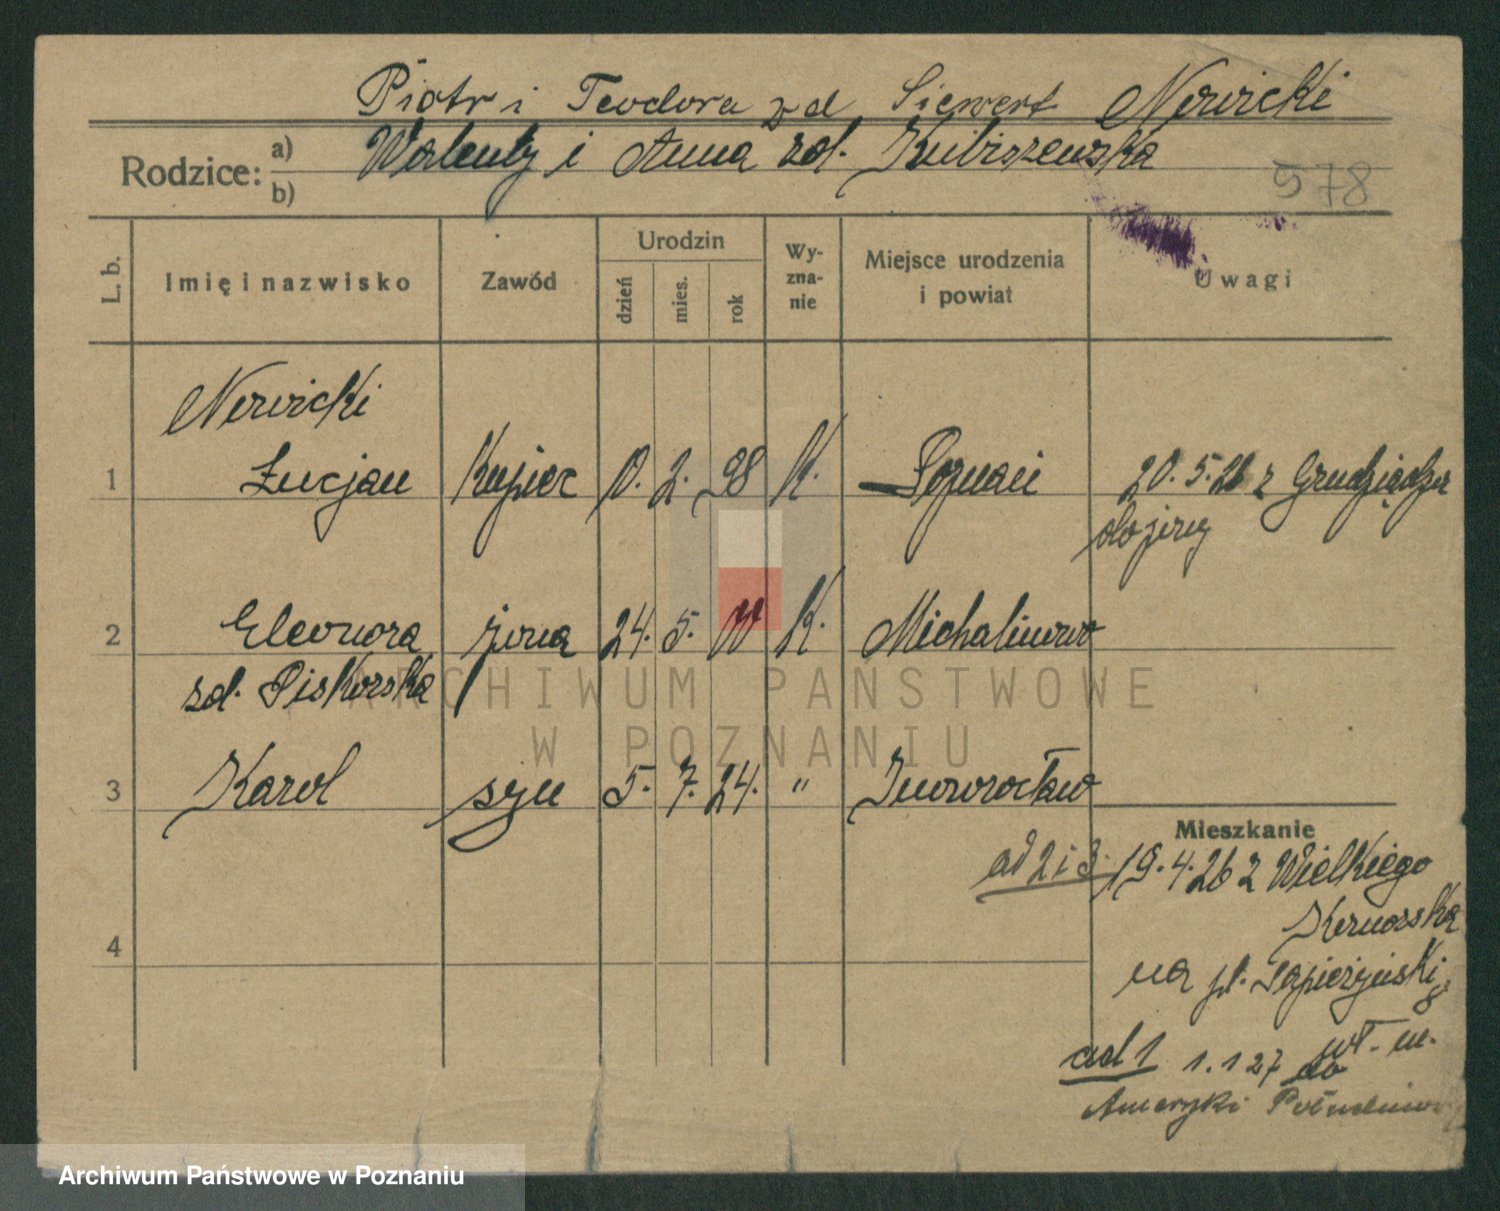 Piotr i Teodora zd Siewert Nowicki
Rodzice: a) Walenty i Anna zd. Kubiszewska
b)
578
L. b. Imię i nazwisko Zawód Urodzin dzień mies. rok Wyznanie Miejsce urodzenia i powiat Uwagi
Nowicki
1 Łucjan Kupiec 10. 2. 98 K. Poznań 20. 5. 26 z Grudziądza
do żony
2 Eleonora żona 24. 5. K. Michalinowo
zd. Piskorska
3 Karol syn 5. 7. 24. " Inowrocław
Mieszkanie
ad 2 i 3. 19. 4. 26 z Wielkiego
4
na pl. Sapieżyński
8
wł. m.
ad 1 1. 1 27 do
Ameryki Południow
ARCHIWUM PAŃSTWOWE
W POZNANIU
Archiwum Państwowe w Poznaniu